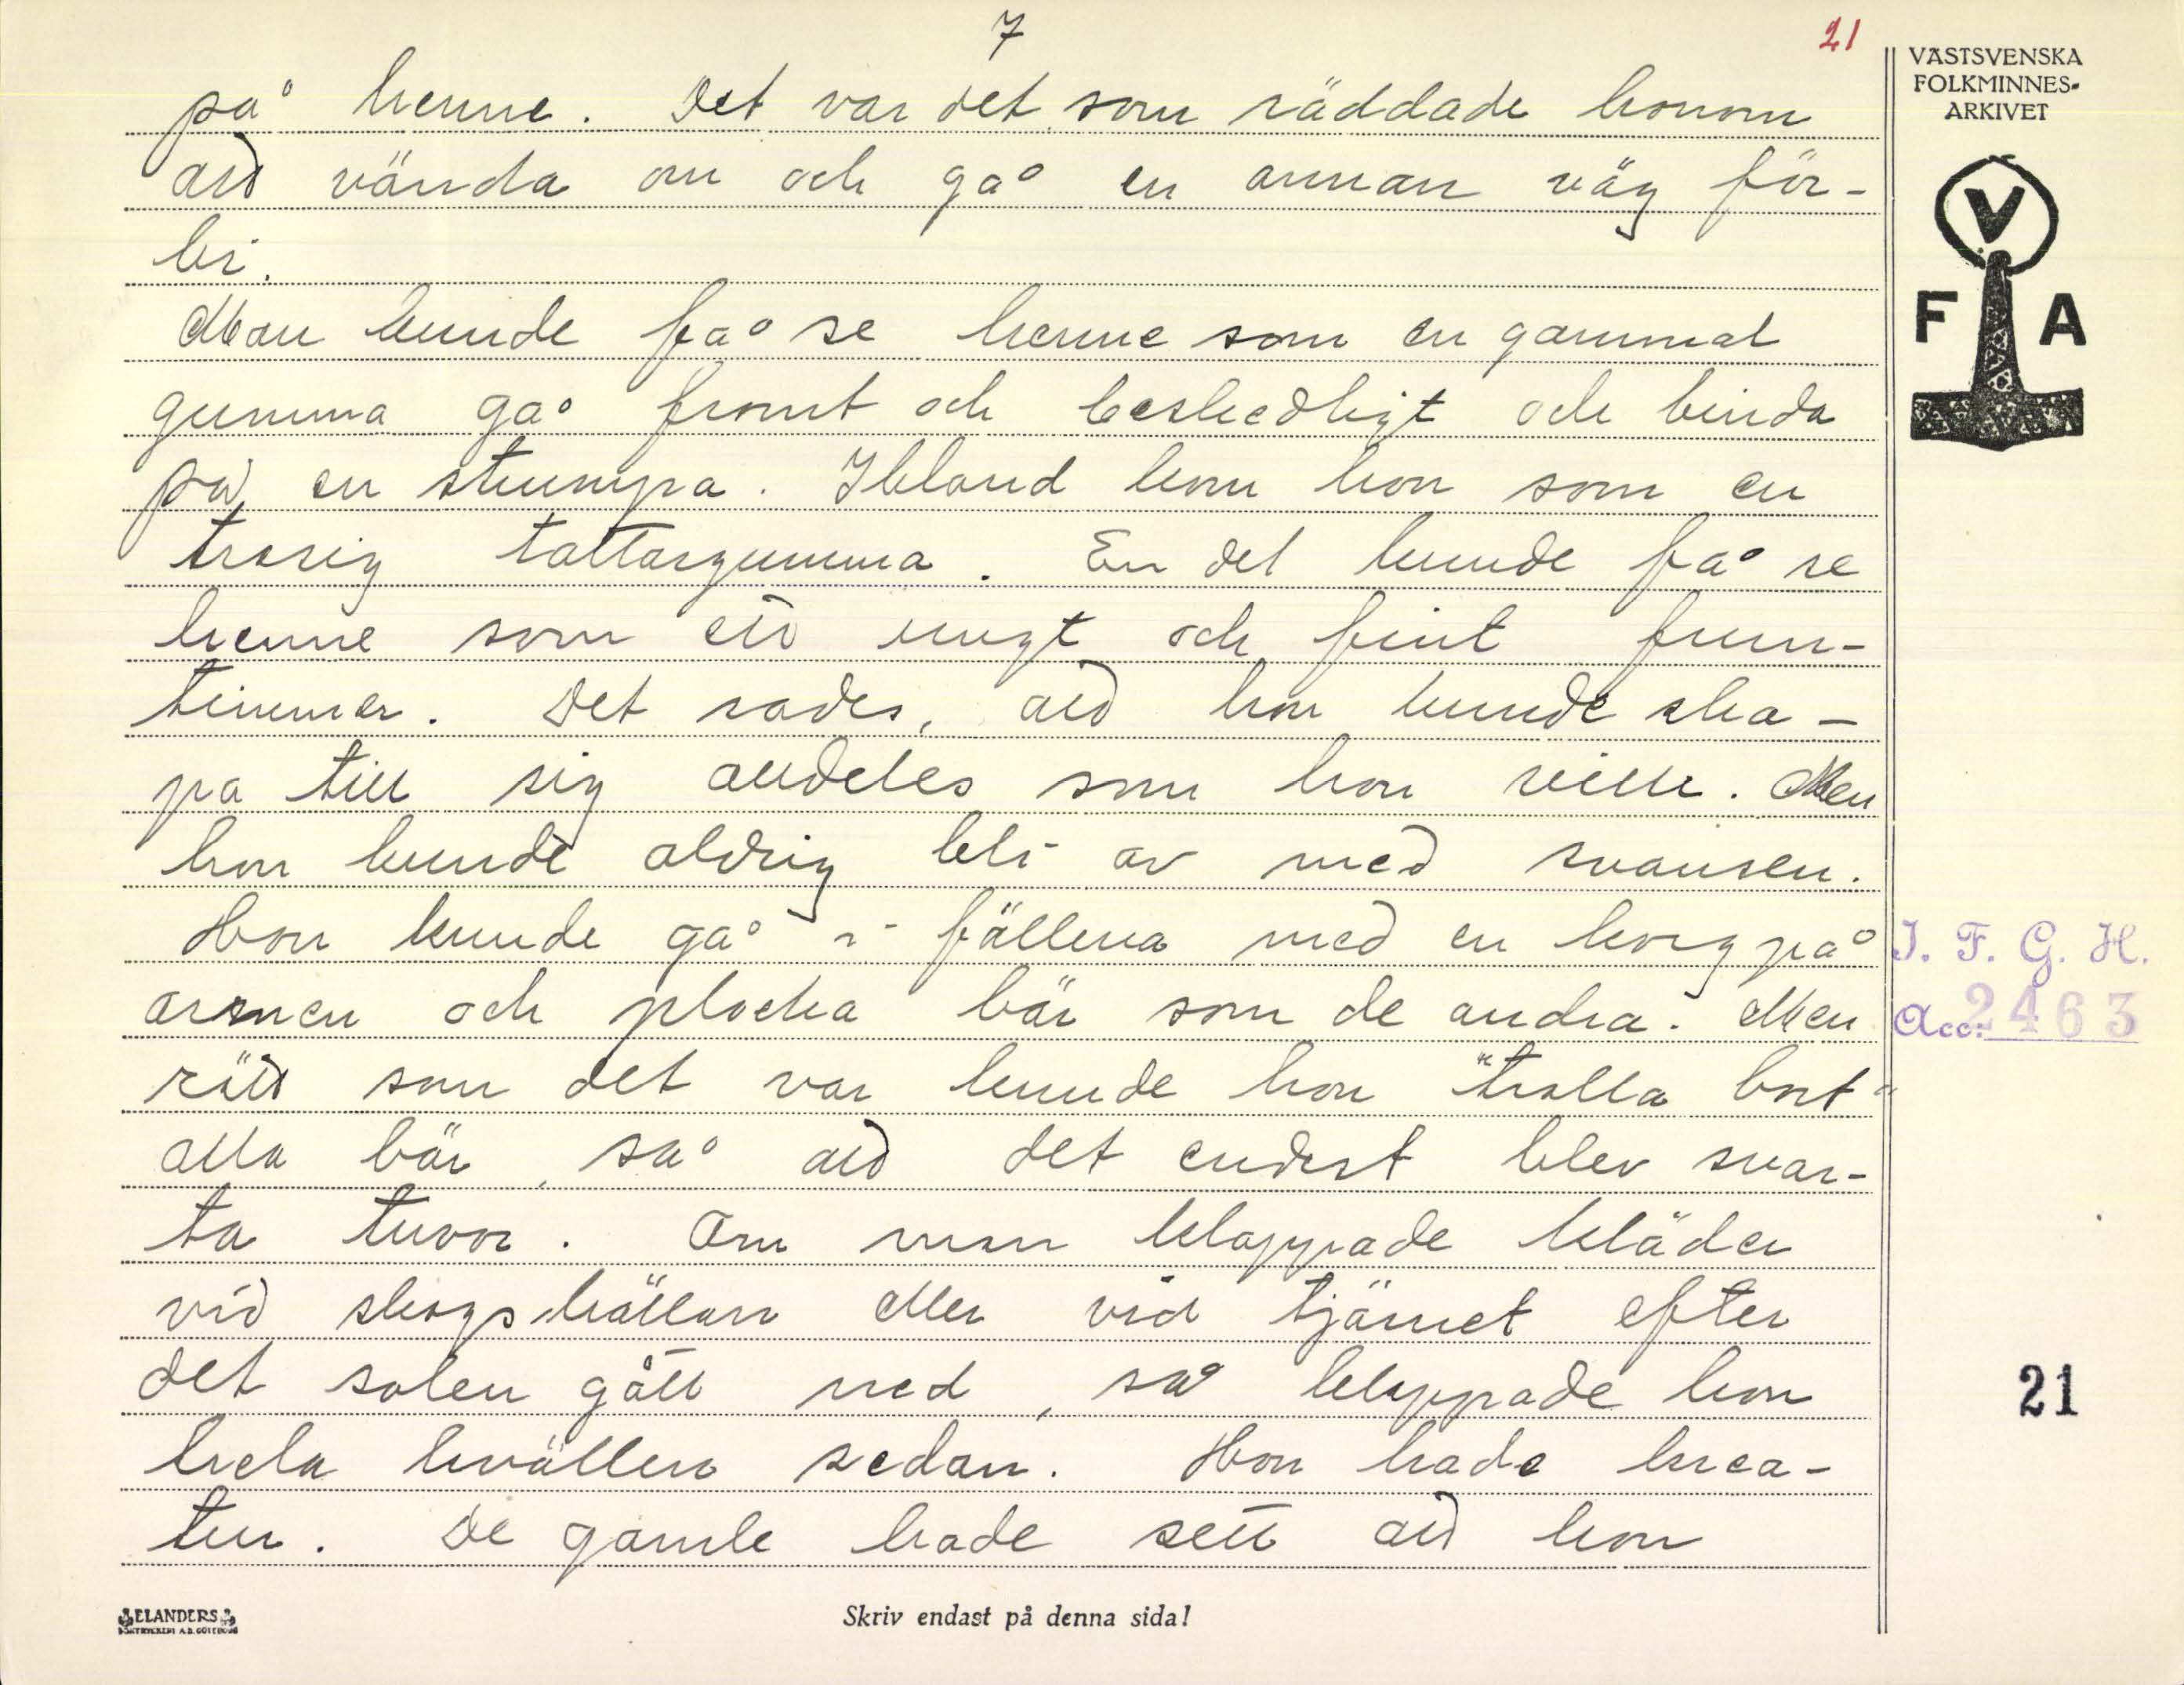 7
21
på henne. Det var det som räddade honom
att vända om och gå en annan väg för-
bi.
Man kunde få se henne som en gammal
gumma gå fromt och beskedligt och binda
på en strumpa. Ibland kom hon som en
trasig tattargumma. En del kunde få se
henne som ett ungt och fint frun-
timmer. Det sades, att hon kunde ska-
pa till sig alldeles som hon ville. Men
hon kunde aldrig bli av med svansen.
Hon kunde gå i fällena med en korg på
armen och plocka bär som de andra. Men
rätt som det var kunde hon "trolla bort"
alla bär, så att det endast blev svar-
ta tuvor. Om man klappade kläder
vid skogskällan eller vid tjärnet efter
det solen gått ned, så klappade hon
hela kvällen sedan. Hon hade krea-
tur. De gamle hade sett att hon
VÄSTSVENSKA
FOLKMINNES-
ARKIVET
V
F A
I. F. G. H.
Acc. 2463
21
ELANDERS
BOKTRYCKERI A.B. GÖTEBORG
Skriv endast på denna sida!